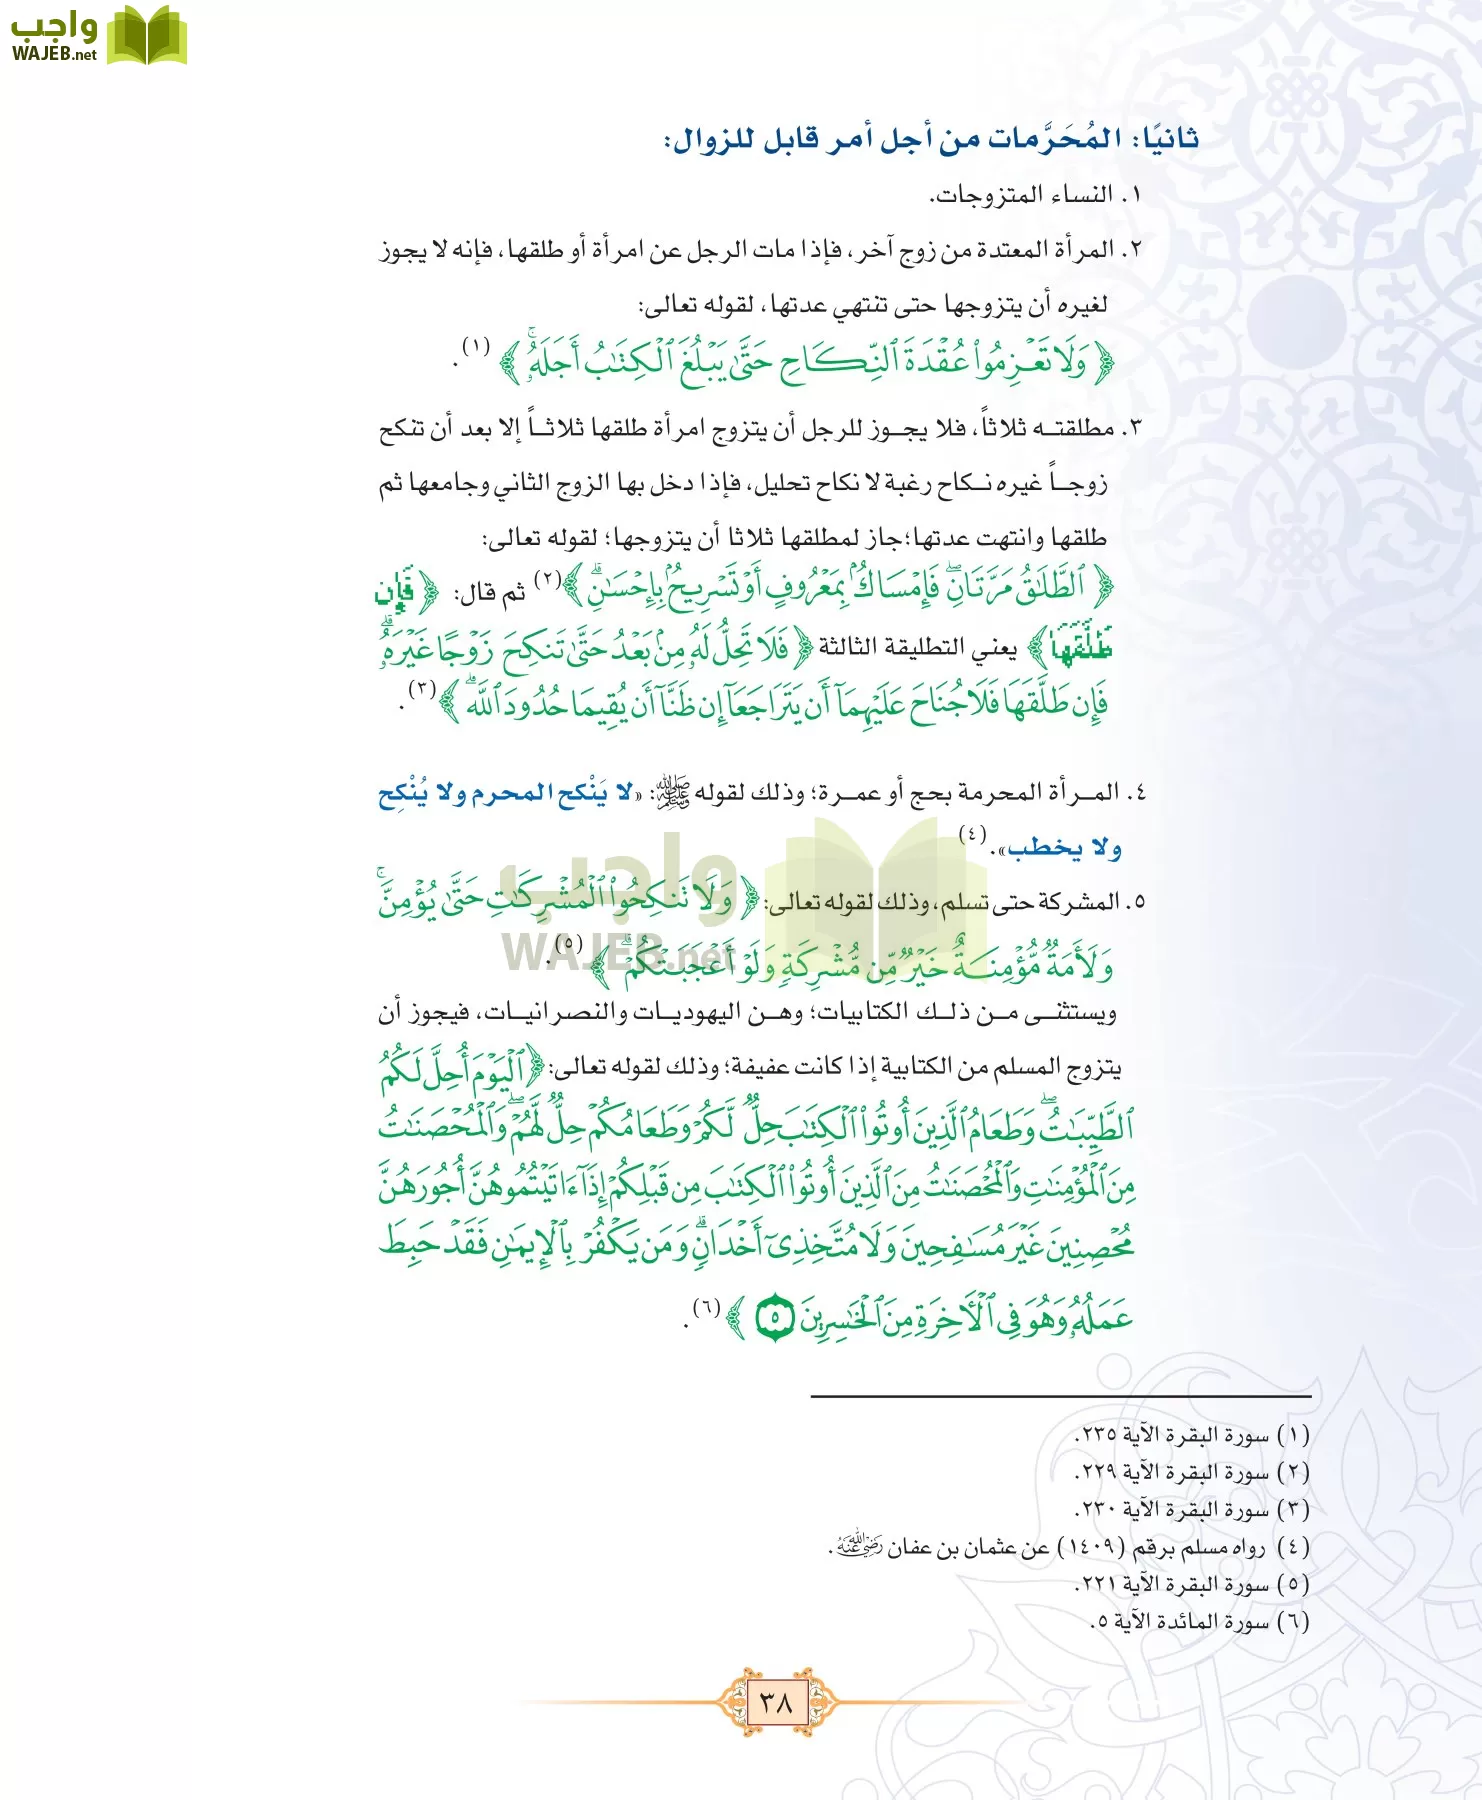 واجب
WAJEB.net
ثانيًا: المُحَرَّمات من أجل أمر قابل للزوال:
١. النساء المتزوجات.
٢. المرأة المعتدة من زوج آخر، فإذا مات الرجل عن امرأة أو طلقها، فإنه لا يجوز
لغيره أن يتزوجها حتى تنتهي عدتها، لقوله تعالى:
﴿ وَلَا تَعْزِمُوا۟ عُقْدَةَ ٱلنِّكَاحِ حَتَّىٰ يَبْلُغَ ٱلْكِتَٰبُ أَجَلَهُۥ ۚ ﴾ (١).
٣. مطلقتـه ثلاثاً، فلا يجـوز للرجل أن يتزوج امرأة طلقها ثلاثـاً إلا بعد أن تنكح
زوجـاً غيره نـكاح رغبة لا نكاح تحليل، فإذا دخل بها الزوج الثاني وجامعها ثم
طلقها وانتهت عدتها؛جاز لمطلقها ثلاثا أن يتزوجها؛ لقوله تعالى:
﴿ ٱلطَّلَٰقُ مَرَّتَانِ ۖ فَإِمْسَاكٌۢ بِمَعْرُوفٍ أَوْ تَسْرِيحٌۢ بِإِحْسَٰنٍ ۗ ﴾(٢) ثم قال: ﴿ فَإِن
طَلَّقَهَا ﴾ يعني التطليقة الثالثة ﴿ فَلَا تَحِلُّ لَهُۥ مِنۢ بَعْدُ حَتَّىٰ تَنكِحَ زَوْجًا غَيْرَهُۥ ۗ
فَإِن طَلَّقَهَا فَلَا جُنَاحَ عَلَيْهِمَآ أَن يَتَرَاجَعَآ إِن ظَنَّآ أَن يُقِيمَا حُدُودَ ٱللَّهِ ۗ ﴾(٣).
٤. المـرأة المحرمة بحج أو عمـرة؛ وذلك لقوله ﷺ: «لا يَنْكح المحرم ولا يُنْكِح
ولا يخطب».(٤)
٥. المشركة حتى تسلم، وذلك لقوله تعالى: ﴿ وَلَا تَنكِحُوا۟ ٱلْمُشْرِكَٰتِ حَتَّىٰ يُؤْمِنَّ ۚ
وَلَأَمَةٌ مُّؤْمِنَةٌ خَيْرٌ مِّن مُّشْرِكَةٍ وَلَوْ أَعْجَبَتْكُمْ ۗ ﴾(٥).
ويستثنى مـن ذلـك الكتابيات؛ وهـن اليهوديـات والنصرانيـات، فيجوز أن
يتزوج المسلم من الكتابية إذا كانت عفيفة؛ وذلك لقوله تعالى: ﴿ ٱلْيَوْمَ أُحِلَّ لَكُمُ
ٱلطَّيِّبَٰتُ ۖ وَطَعَامُ ٱلَّذِينَ أُوتُوا۟ ٱلْكِتَٰبَ حِلٌّ لَّكُمْ وَطَعَامُكُمْ حِلٌّ لَّهُمْ ۖ وَٱلْمُحْصَنَٰتُ
مِنَ ٱلْمُؤْمِنَٰتِ وَٱلْمُحْصَنَٰتُ مِنَ ٱلَّذِينَ أُوتُوا۟ ٱلْكِتَٰبَ مِن قَبْلِكُمْ إِذَآ ءَاتَيْتُمُوهُنَّ أُجُورَهُنَّ
مُحْصِنِينَ غَيْرَ مُسَٰفِحِينَ وَلَا مُتَّخِذِىٓ أَخْدَانٍ ۗ وَمَن يَكْفُرْ بِٱلْإِيمَٰنِ فَقَدْ حَبِطَ
عَمَلُهُۥ وَهُوَ فِى ٱلْءَاخِرَةِ مِنَ ٱلْخَٰسِرِينَ ٥ ﴾(٦).
واجب
WAJEB.net
(١) سورة البقرة الآية ٢٣٥.
(٢) سورة البقرة الآية ٢٢٩.
(٣) سورة البقرة الآية ٢٣٠.
(٤) رواه مسلم برقم (١٤٠٩) عن عثمان بن عفان رضي الله عنه.
(٥) سورة البقرة الآية ٢٢١.
(٦) سورة المائدة الآية ٥.
٣٨